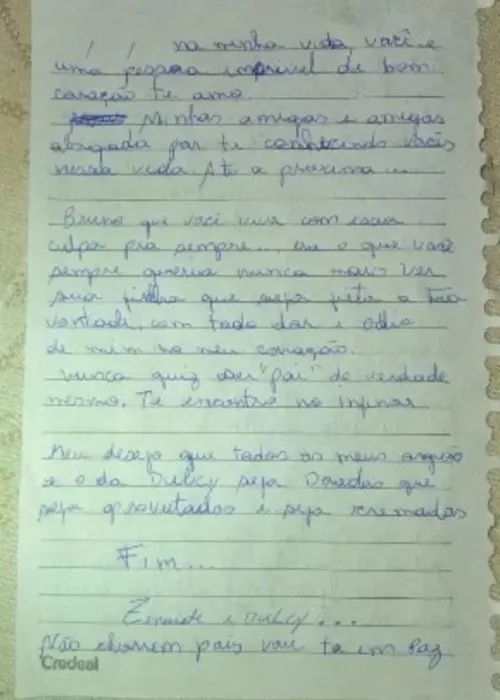 na minha vida, você e
uma pessoa de bom
coração te amo
Minhas amigas e amigas
obrigada por te conhecido vocês
nessa vida. Até a proxima ...
Bruno que você viva com essa
culpa pra sempre... era o que você
sempre queria nunca mais ver
sua filha que seja feita a tua
vontade, com toda dor e odio
de mim no meu coração.
Nunca quiz ser "pai" de verdade
mesmo. Te encontro no
Meu desejo que todos os meus orgãos
e o da Dulcy seja Doados que
seja aprovutados e seja cremadas
Fim...
Zenaide e Dulcy...
Não chorrem pais vou ta em Paz
Credeal